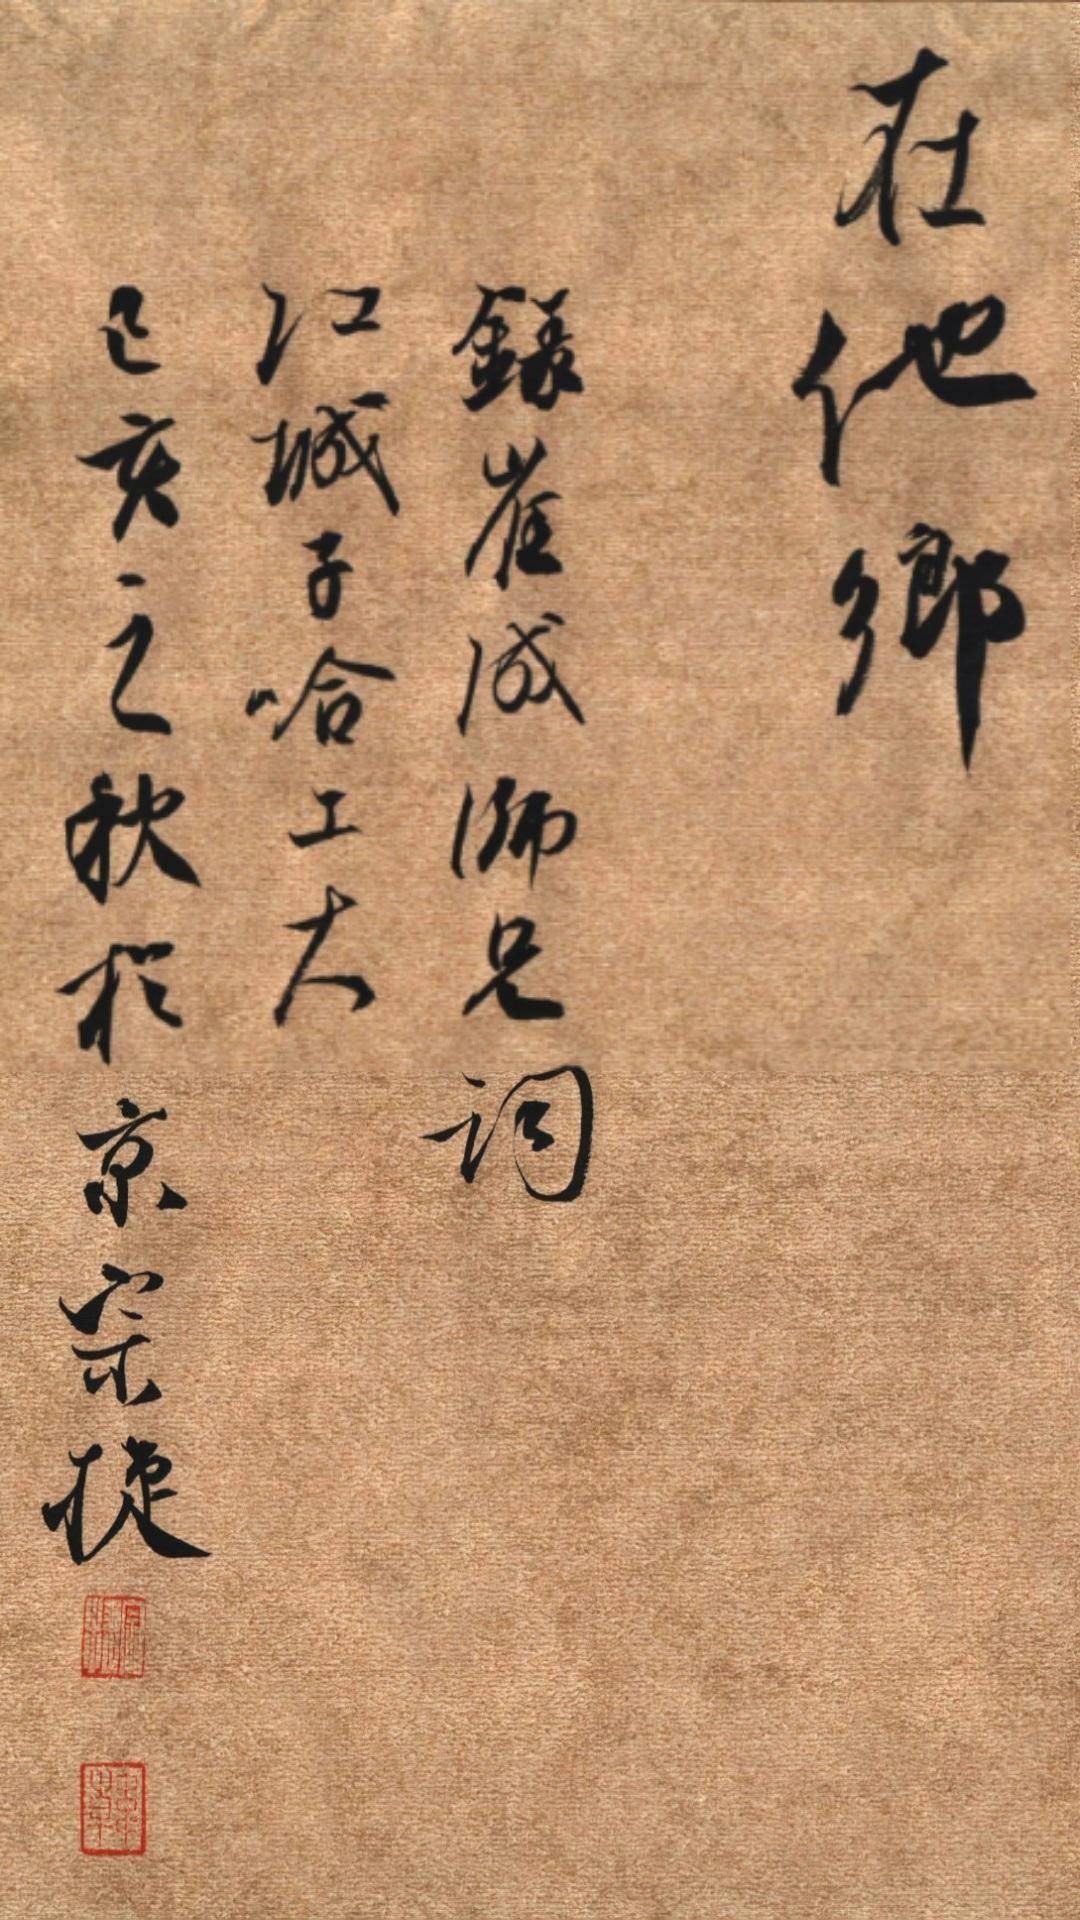 在他鄉
録崔成師兄詞
江城子哈工大
己亥之秋於京宗捷